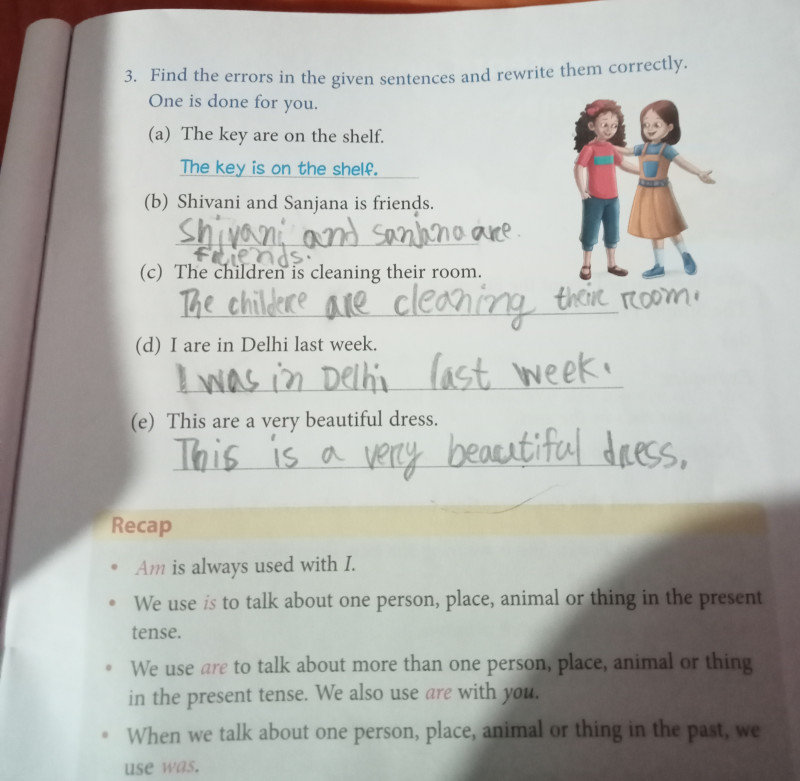 3. Find the errors in the given sentences and rewrite them correctly.
One is done for you.
(a) The key are on the shelf.
The key is on the shelf.
(b) Shivani and Sanjana is friends.
Shivani and Sanjana are.
friends.
(c) The children is cleaning their room.
The childere are cleaning their room.
(d) I are in Delhi last week.
I was in Delhi last week.
(e) This are a very beautiful dress.
This is a very beautiful dress.
Recap
• Am is always used with I.
• We use is to talk about one person, place, animal or thing in the present
tense.
• We use are to talk about more than one person, place, animal or thing
in the present tense. We also use are with you.
• When we talk about one person, place, animal or thing in the past, we
use was.